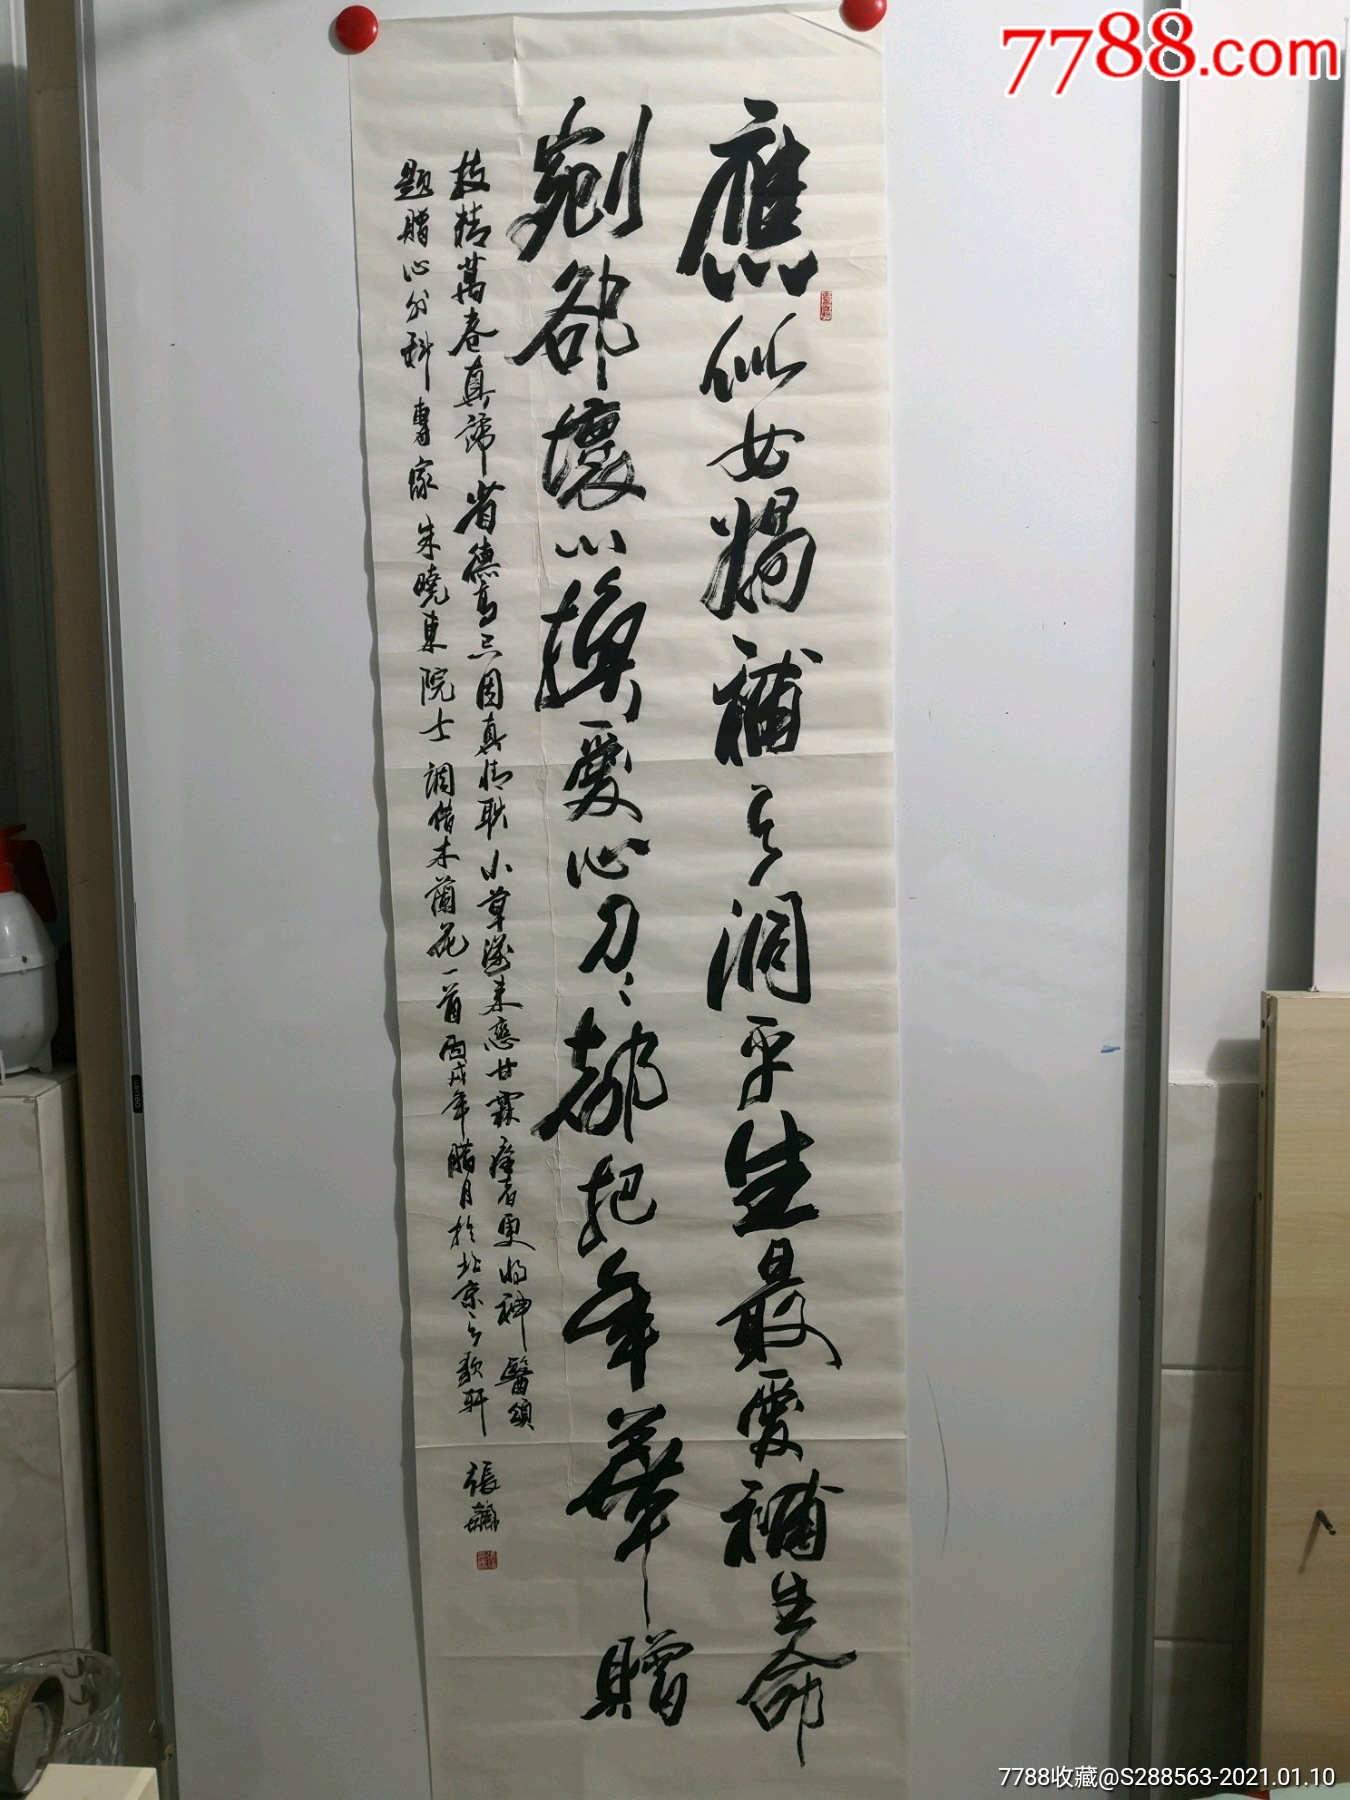 應似女媧補之洞平生最愛補生命
剜卻壞心換愛心刀刀都把年華贈
技精萬卷真諦省德高只因真情耿小草緣來戀甘霖痊者更將神醫頌
題贈心外科專家朱曉東院士調借木蘭花一首丙戌年臘月於北京之歌軒
張飆
7788.com
7788收藏@S288563-2021.01.10